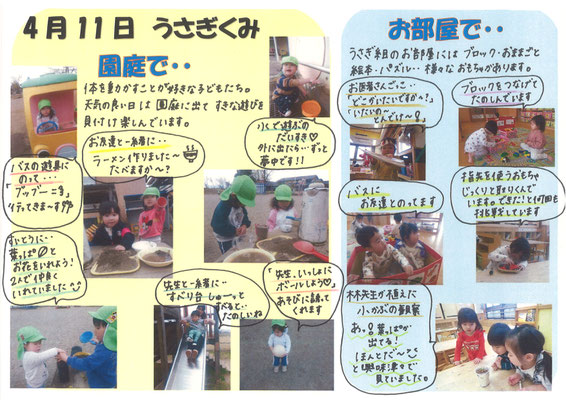 4月11日 うさぎぐみ
園庭で・・
体を動かすことが好きな子どもたち。
天気の良い日は園庭に出てすきな遊びを
見付けて楽しんでいます。
お友達と一緒に・・
ラーメン作りました〜
たべますか〜?
外に出たら・・ずっと
夢中です!!
バスの遊具に
のって・・・
「ブッブー
行ってきま〜す
葉っぱ
お花をいれよう!
2人で仲良く
いれていました
先生と一緒に・・
すべり台 しゅーッと
すべると・・
たのしいね
「先生、いっしょに
ボールしよう♡」
あそびに誘って
くれます
お部屋で・・
うさぎ組のお部屋には ブロック・おままごと
絵本・パズル・・様々なおもちゃがあります。
お医者さんごっこ・・
「どこがいたいですか〜?」
「いたいの〜
とんでけ〜
ブロックをつなげて
たのしんでいます
バスに
お友達とのってます
指先を使うおもちゃ
じっくりと取りくんで
います。できた!と何回も
挑戦しています
先生が植えた
小かぶの観察
あっ!葉っぱが
出てる!
ほんとだ〜
と興味津々で
見ていました。